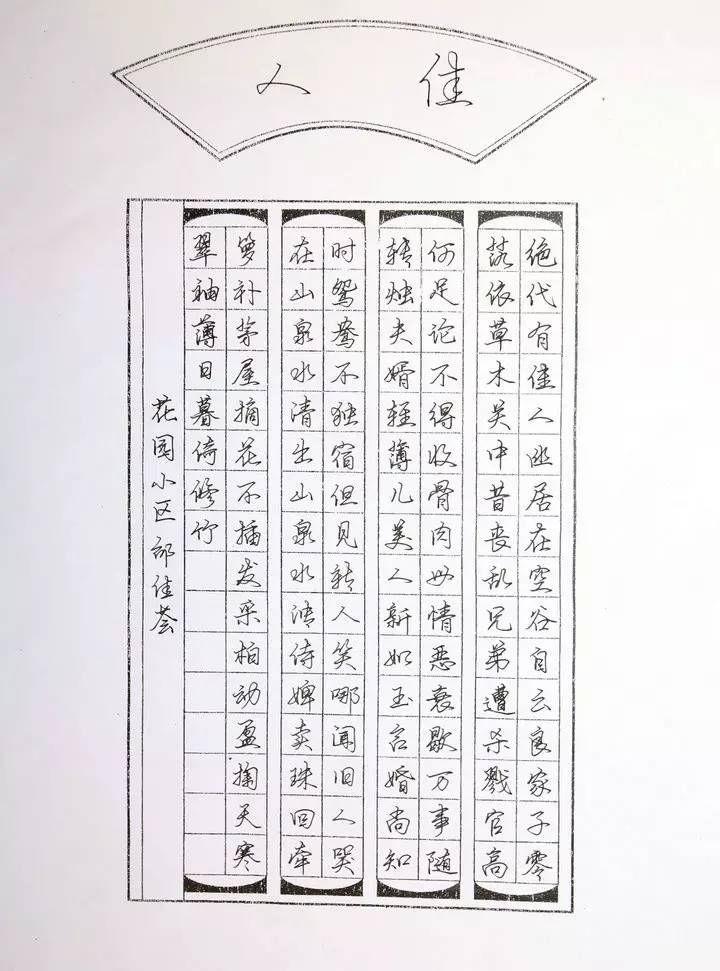 佳人
绝代有佳人幽居在空谷自云良家子零
落依草木关中昔丧乱兄弟遭杀戮官高
何足论不得收骨肉世情恶衰歇万事随
转烛夫婿轻薄儿美人新如玉合婚尚知
时鸳鸯不独宿但见转人笑哪闻旧人哭
在山泉水清出山泉水浊侍婢卖珠回牵
萝补茅屋摘花不插发采柏动盈掬天寒
翠袖薄日暮倚修竹
花园小区 佳荟